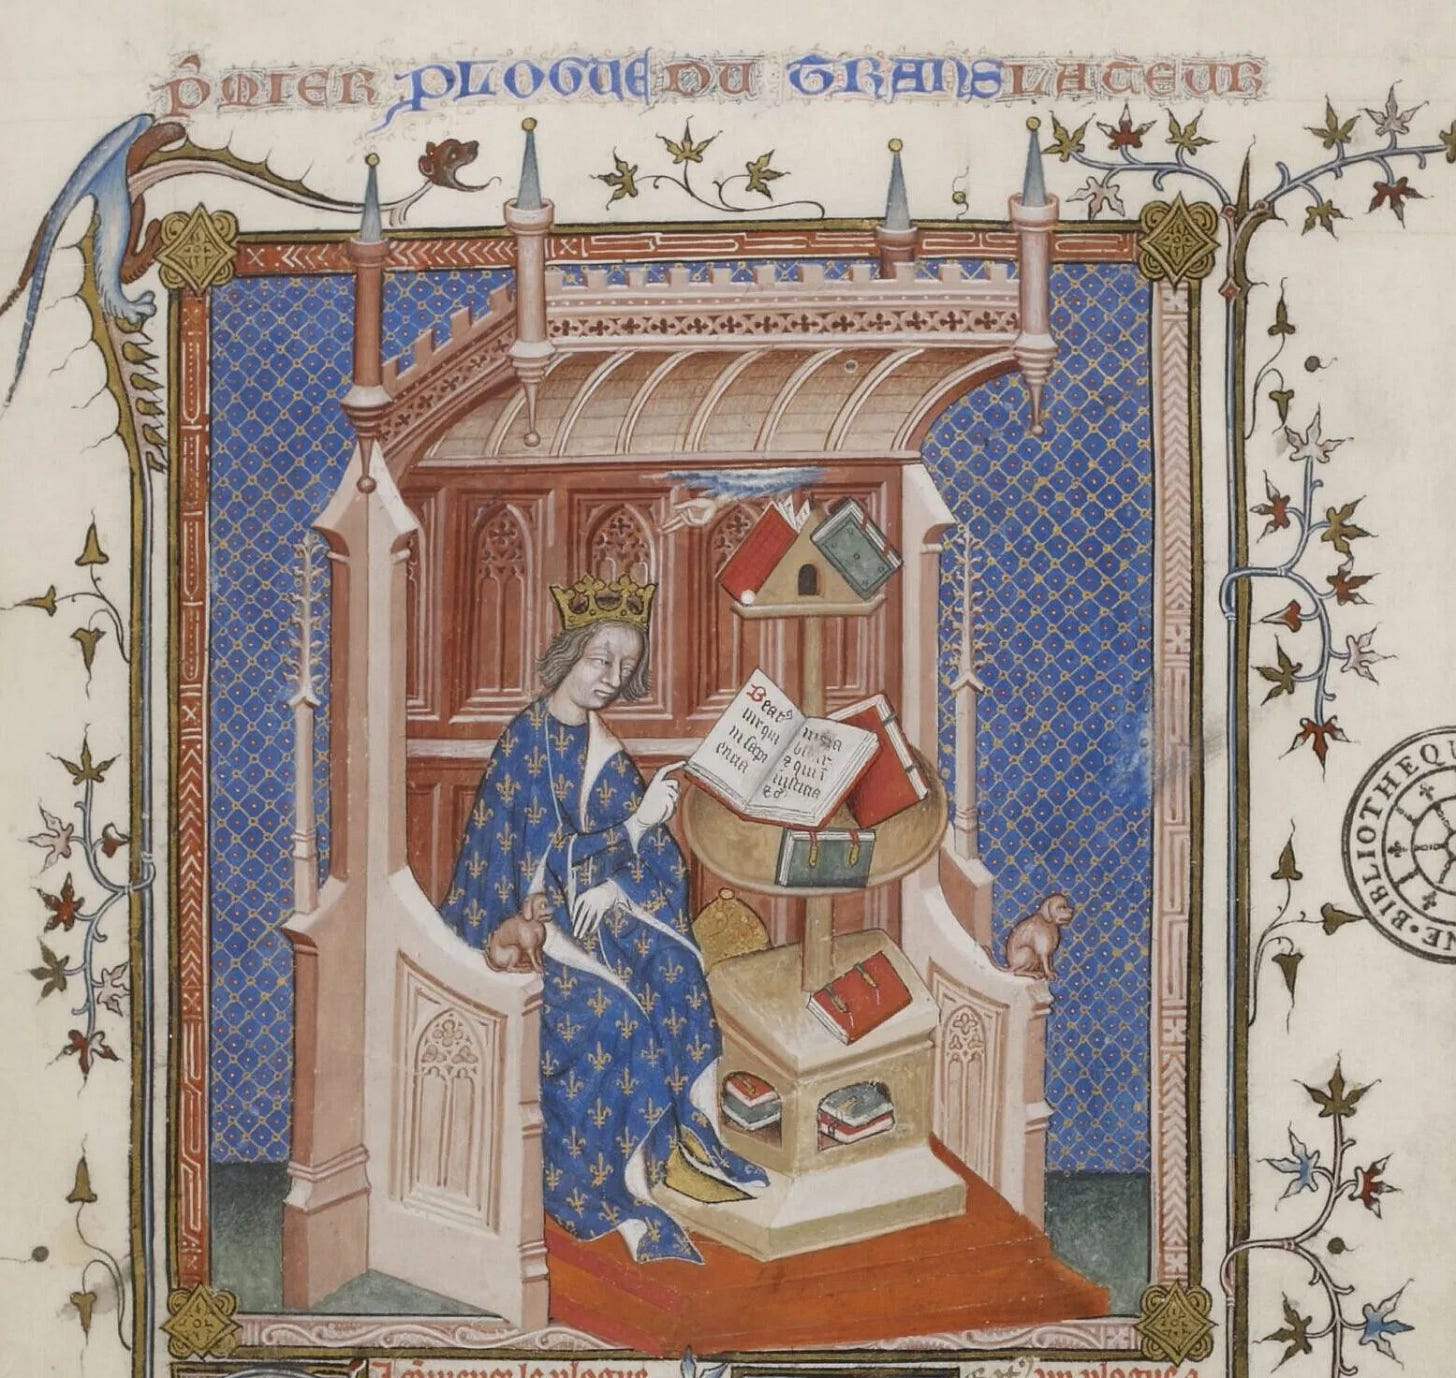 P̃MIER PLOGUE DU TRANSLATEUR
Beatꝯ
uir qui
in sapi
encia
bitur
⁊ qui ĩ
iusticia
BIBLIOTHEQU
le plogue
un plogue